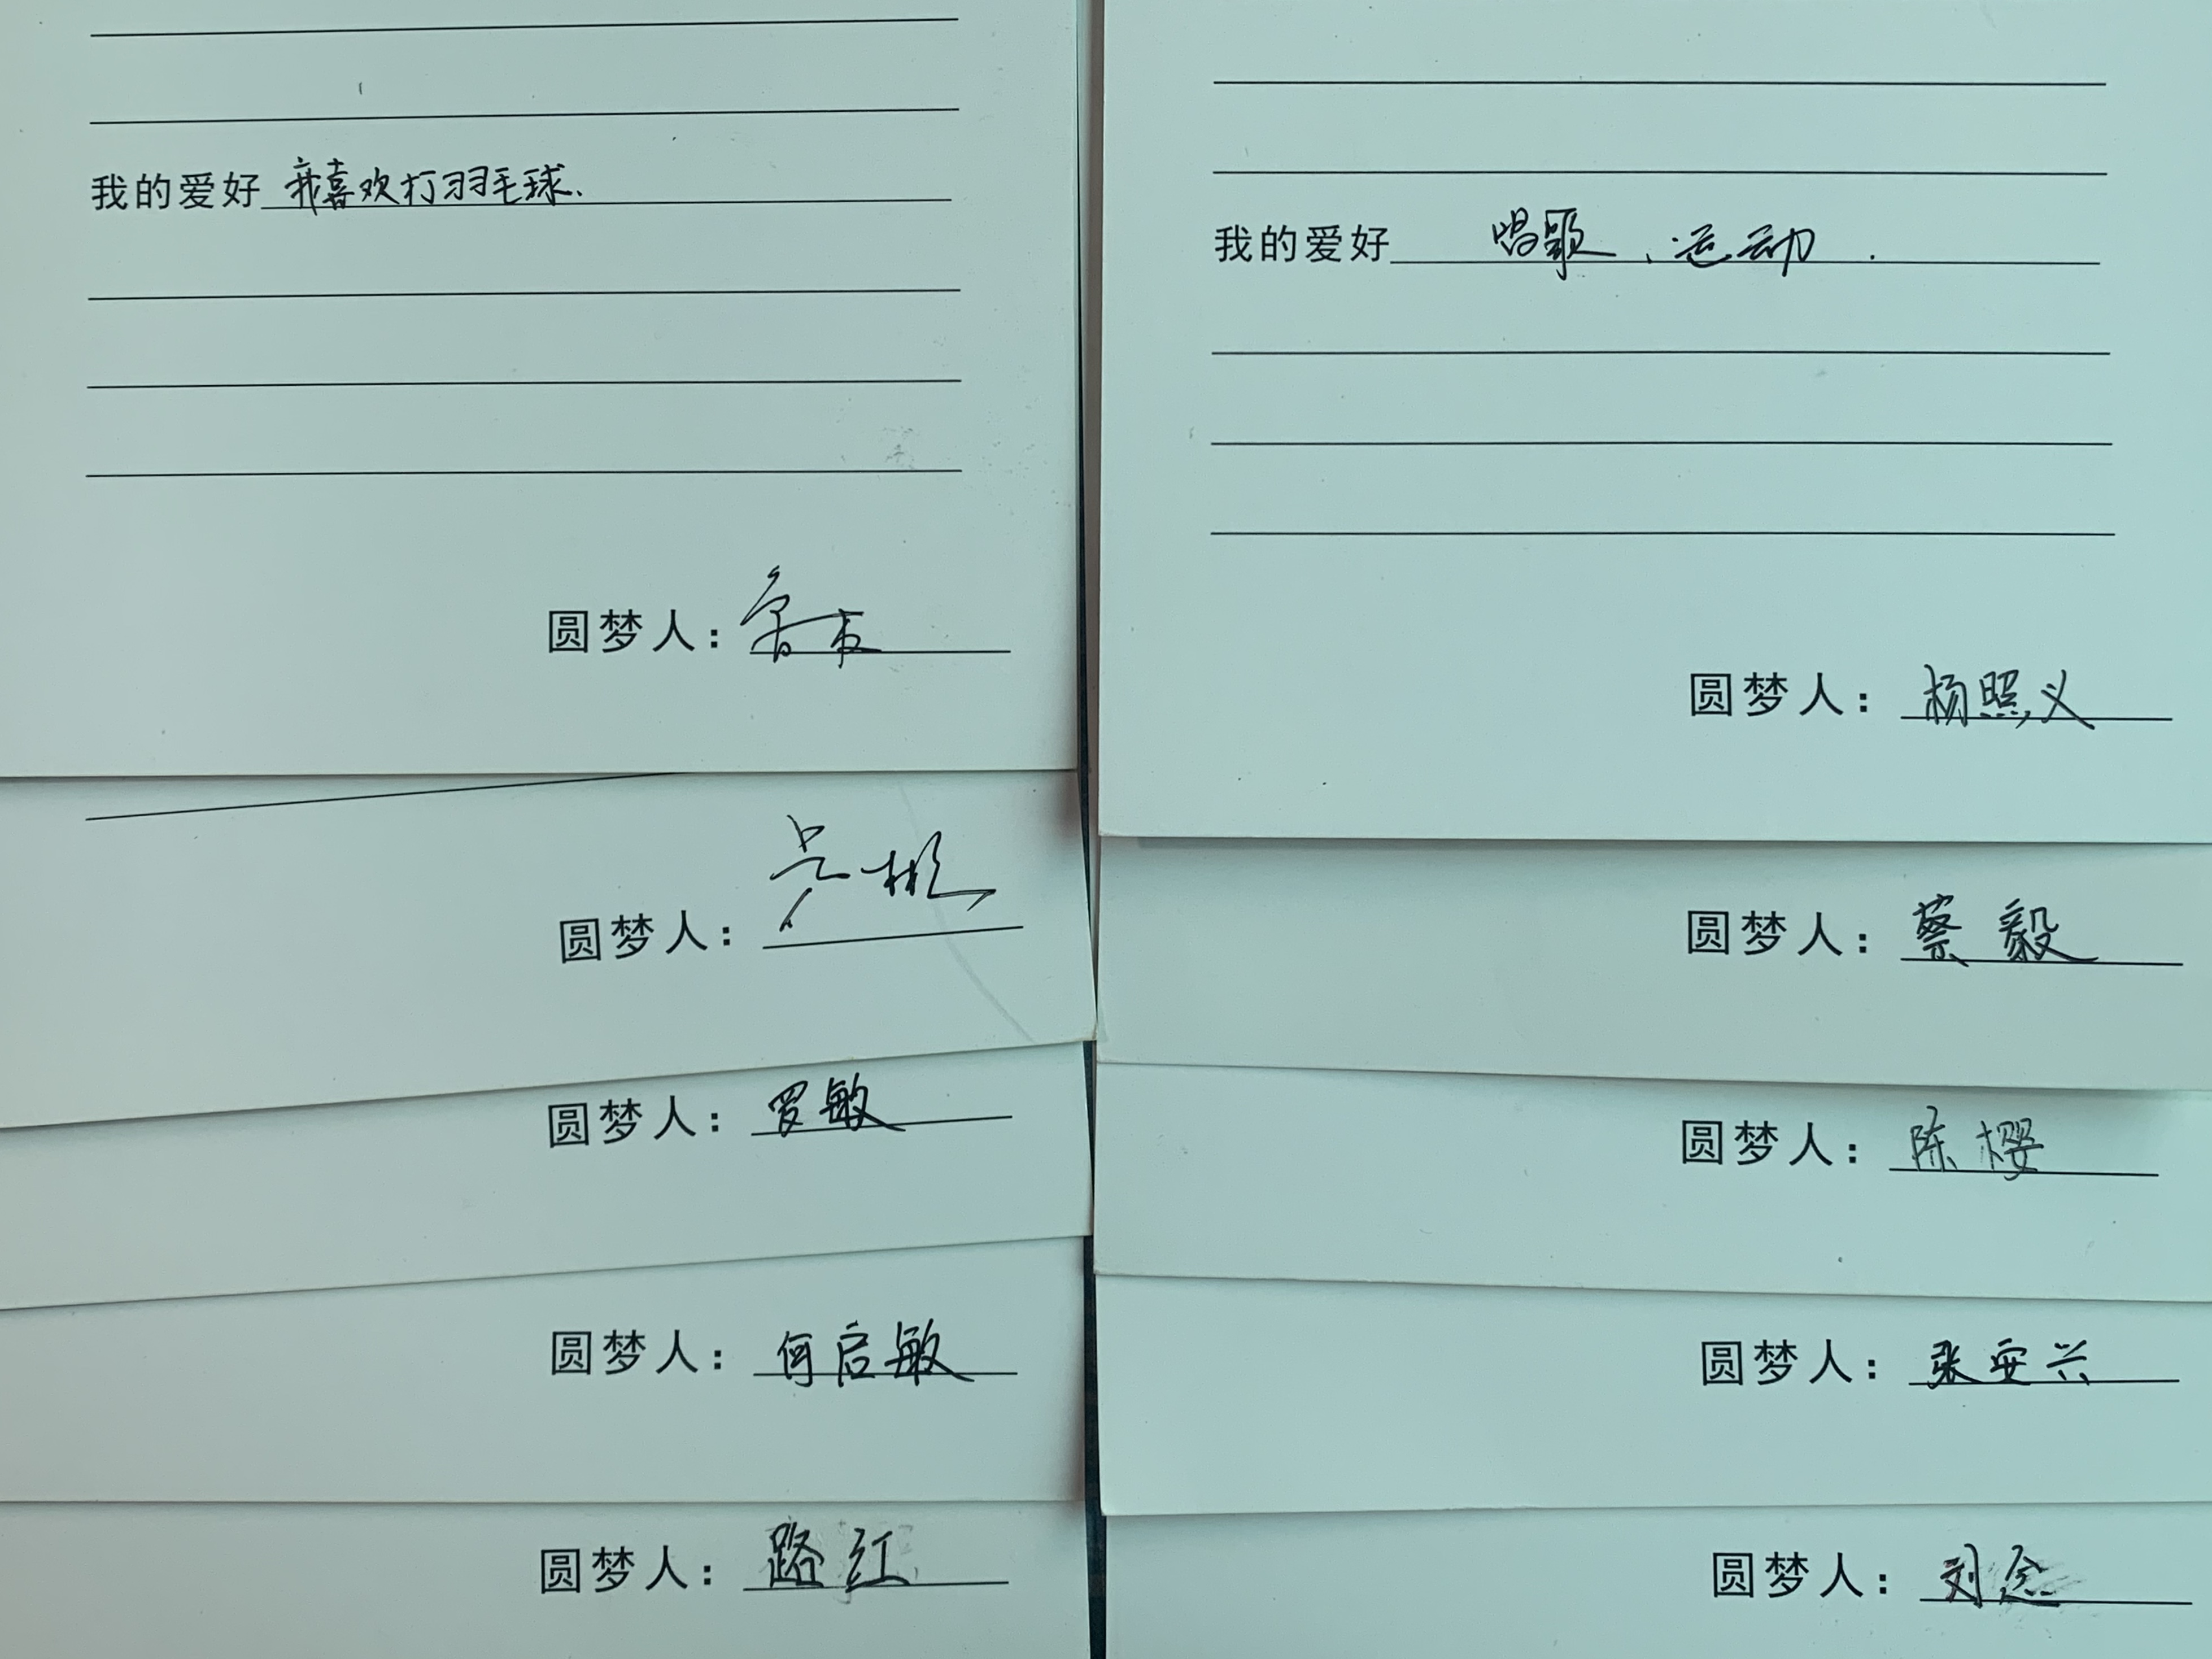 我的爱好 我喜欢打羽毛球.
圆梦人:
圆梦人: 吴彬
圆梦人: 罗敏
圆梦人: 何启敏
圆梦人: 路红
我的爱好 唱歌、运动.
圆梦人: 杨照义
圆梦人: 蔡毅
圆梦人: 陈樱
圆梦人: 张安兴
圆梦人: 刘念